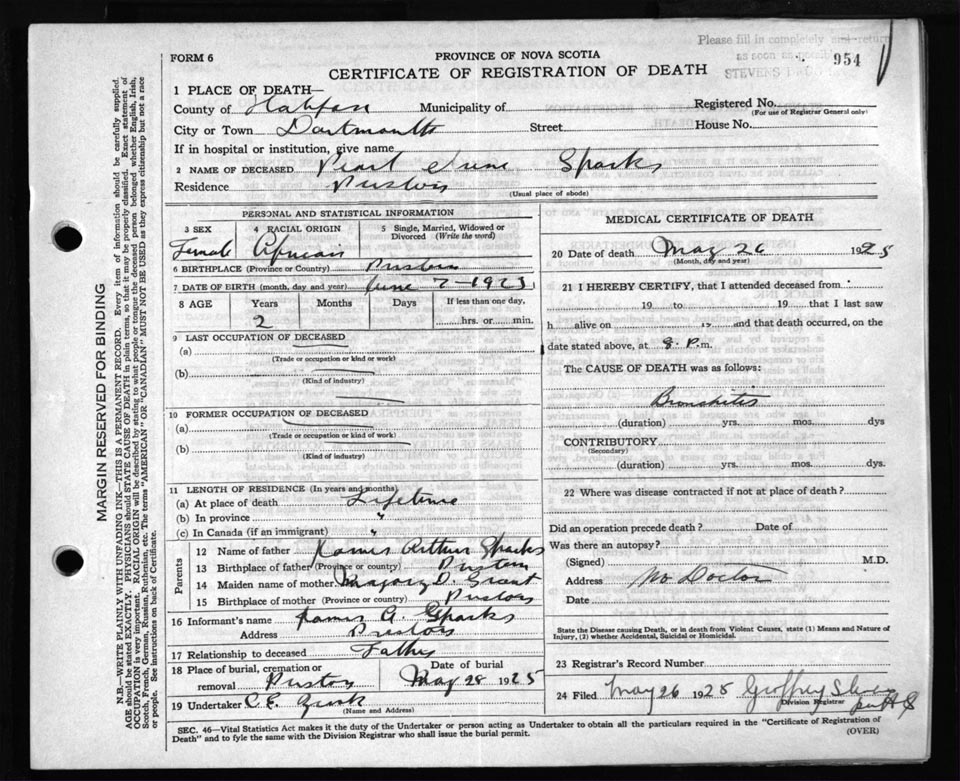 Please fill in completely and return
as soon as possible
STEVENS
954
FORM 6
PROVINCE OF NOVA SCOTIA
CERTIFICATE OF REGISTRATION OF DEATH
1 PLACE OF DEATH—
County of Halifax Municipality of Registered No.
(For use of Registrar General only)
City or Town Dartmouth Street House No.
If in hospital or institution, give name
2 NAME OF DECEASED Pearl Irene Sparks
Residence Preston
(Usual place of abode)
PERSONAL AND STATISTICAL INFORMATION
3 SEX 4 RACIAL ORIGIN 5 Single, Married, Widowed or Divorced (Write the word)
Female African
6 BIRTHPLACE (Province or Country) Preston
7 DATE OF BIRTH (month, day and year) June 7-1923
8 AGE Years Months Days If less than one day,
2 hrs. or min.
9 LAST OCCUPATION OF DECEASED
(a)
(Trade or occupation or kind or work)
(b)
(Kind of industry)
10 FORMER OCCUPATION OF DECEASED
(a)
(Trade or occupation or kind of work)
(b)
(Kind of industry)
11 LENGTH OF RESIDENCE (In years and months)
(a) At place of death Lifetime
(b) In province "
(c) In Canada (if an immigrant) "
Parents
12 Name of father James Arthur Sparks
13 Birthplace of father (Province or Country) Preston
14 Maiden name of mother Margory D. Grant
15 Birthplace of mother (Province or country) Preston
16 Informant's name James A. Sparks
Address Preston
17 Relationship to deceased Father
18 Place of burial, cremation or Date of burial
removal Preston May 28 1925
19 Undertaker C.E.
(Name and Address)
MEDICAL CERTIFICATE OF DEATH
20 Date of death May 26 1925
(Month, day and year)
21 I HEREBY CERTIFY, that I attended deceased from
19 to 19 that I last saw
h alive on 19 and that death occurred, on the
date stated above, at 8. P.m.
The CAUSE OF DEATH was as follows:
Bronchitis
(duration) yrs. mos. dys
CONTRIBUTORY
(Secondary)
(duration) yrs. mos. dys.
22 Where was disease contracted if not at place of death?
Did an operation precede death? Date of
Was there an autopsy?
(Signed) M.D.
Address No Doctor
Date
State the Disease causing Death, or in death from Violent Causes, state (1) Means and Nature of
Injury, (2) whether Accidental, Suicidal or Homicidal.
23 Registrar's Record Number
24 Filed May 26 1925 Geoffrey
Division Registrar
SEC. 46—Vital Statistics Act makes it the duty of the Undertaker or person acting as Undertaker to obtain all the particulars required in the "Certificate of Registration of
Death" and to fyle the same with the Division Registrar who shall issue the burial permit.
(OVER)
MARGIN RESERVED FOR BINDING
N.B.—WRITE PLAINLY WITH UNFADING INK—THIS IS A PERMANENT RECORD. Every item of information should be carefully supplied.
AGE should be stated EXACTLY. PHYSICIANS should STATE CAUSE OF DEATH in plain terms, so that it may be properly classified. Exact statement of
OCCUPATION is very important. RACIAL ORIGIN will be described by stating to what people or tongue the deceased person belonged whether English, Irish,
Scotch, French, German, Russian, Ruthenian, etc. The terms "AMERICAN" OR "CANADIAN" MUST NOT BE USED as they express citizenship but not a race
or people. See instructions on back of Certificate.